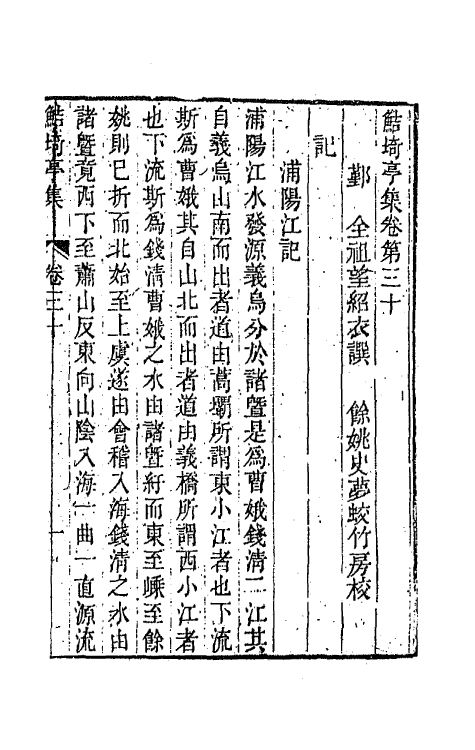 鮚埼亭集卷第三十
鄞 全祖望紹衣譔 餘姚史夢蛟竹房校
記
浦陽江記
浦陽江水發源義烏分於諸曁是爲曹娥錢清二江其
自義烏山南而出者道由蒿壩所謂東小江者也下流
斯爲曹娥其自山北而出者道由義橋所謂西小江者
也下流斯爲錢清曹娥之水由諸曁紆而東至嵊至餘
姚則已折而北始至上虞遂由會稽入海錢清之水由
諸曁竟西下至蕭山反東向山陰入海一曲一直源流
鮚埼亭集 卷三十 一